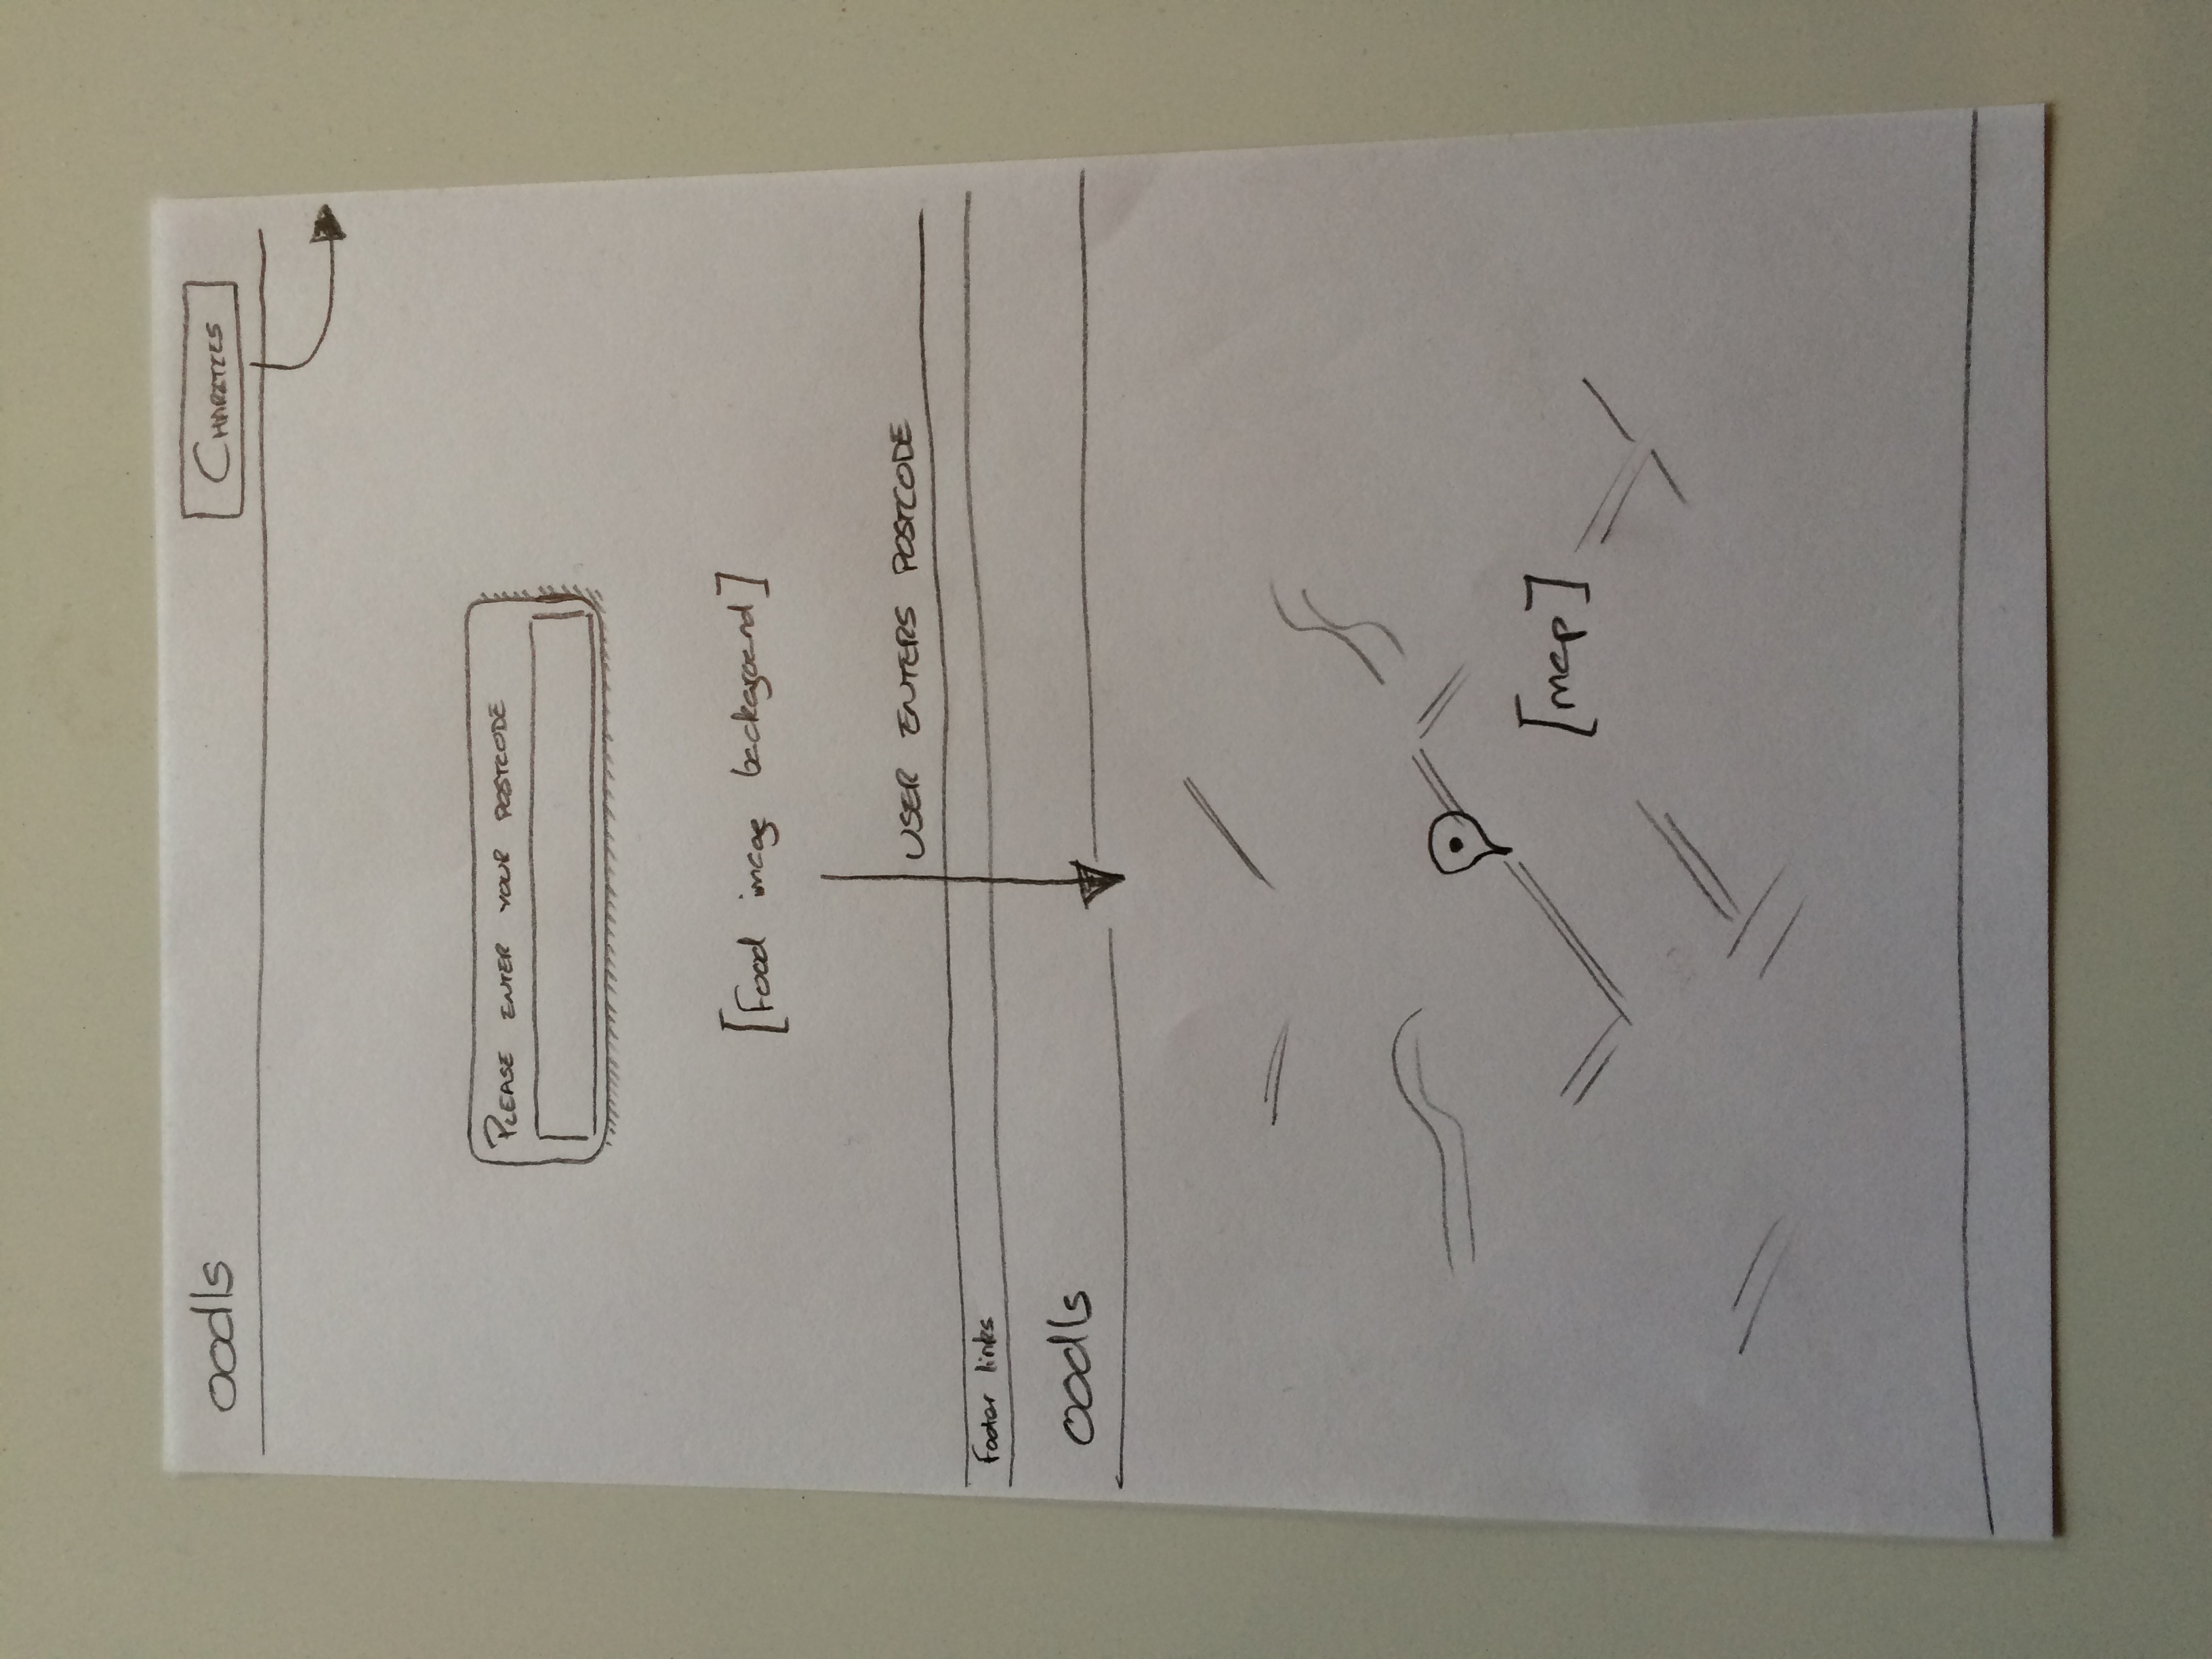 oodls
CHARITIES
PLEASE ENTER YOUR POSTCODE
[Food image background]
USER ENTERS POSTCODE
Footer links
oodls
[map]